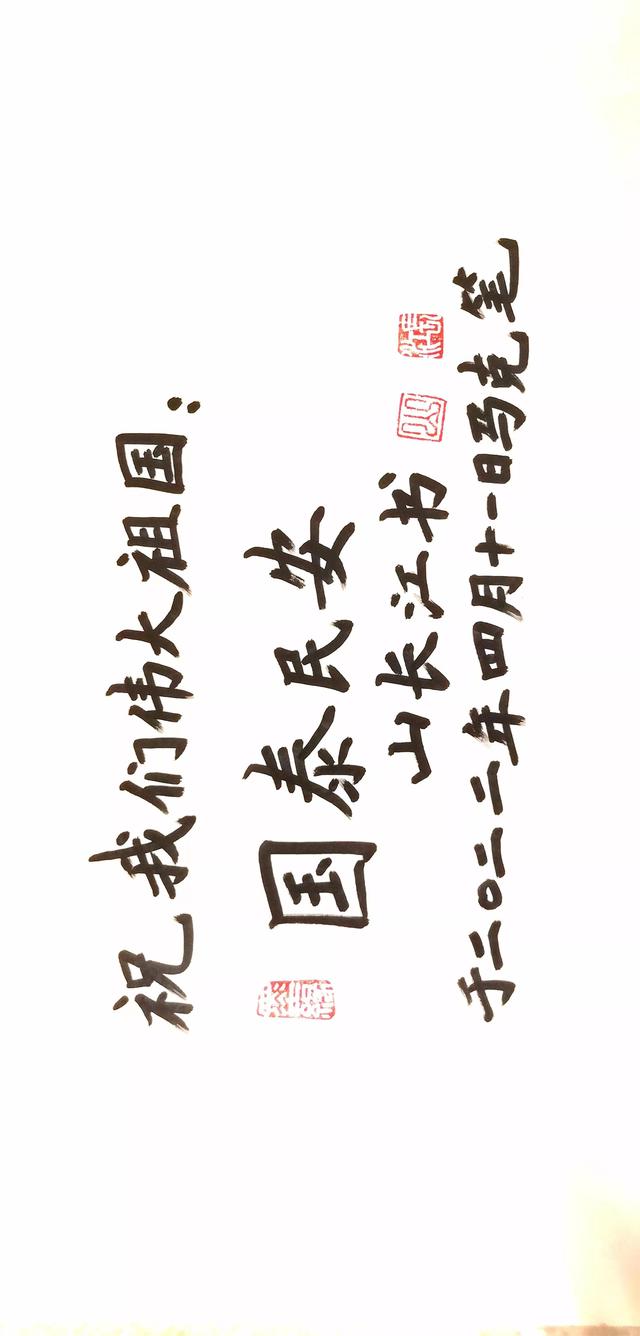 祝我们伟大祖国：
国泰民安
山长江书
于二〇二二年四月十一日马克笔